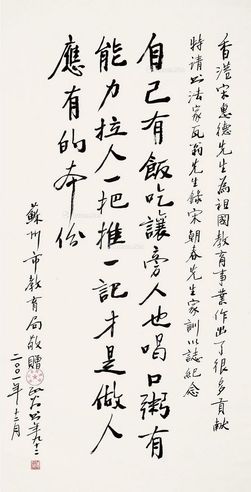 香港宋惠德先生為祖國教育事業作出了很多貢獻
特請書法家瓦翁先生錄宋朝春先生家訓以誌紀念
自己有飯吃讓旁人也喝口粥有
能力拉人一把推一記才是做人
應有的本份
蘇州市教育局敬贈
二〇〇一年十二月
瓦翁書年九十二